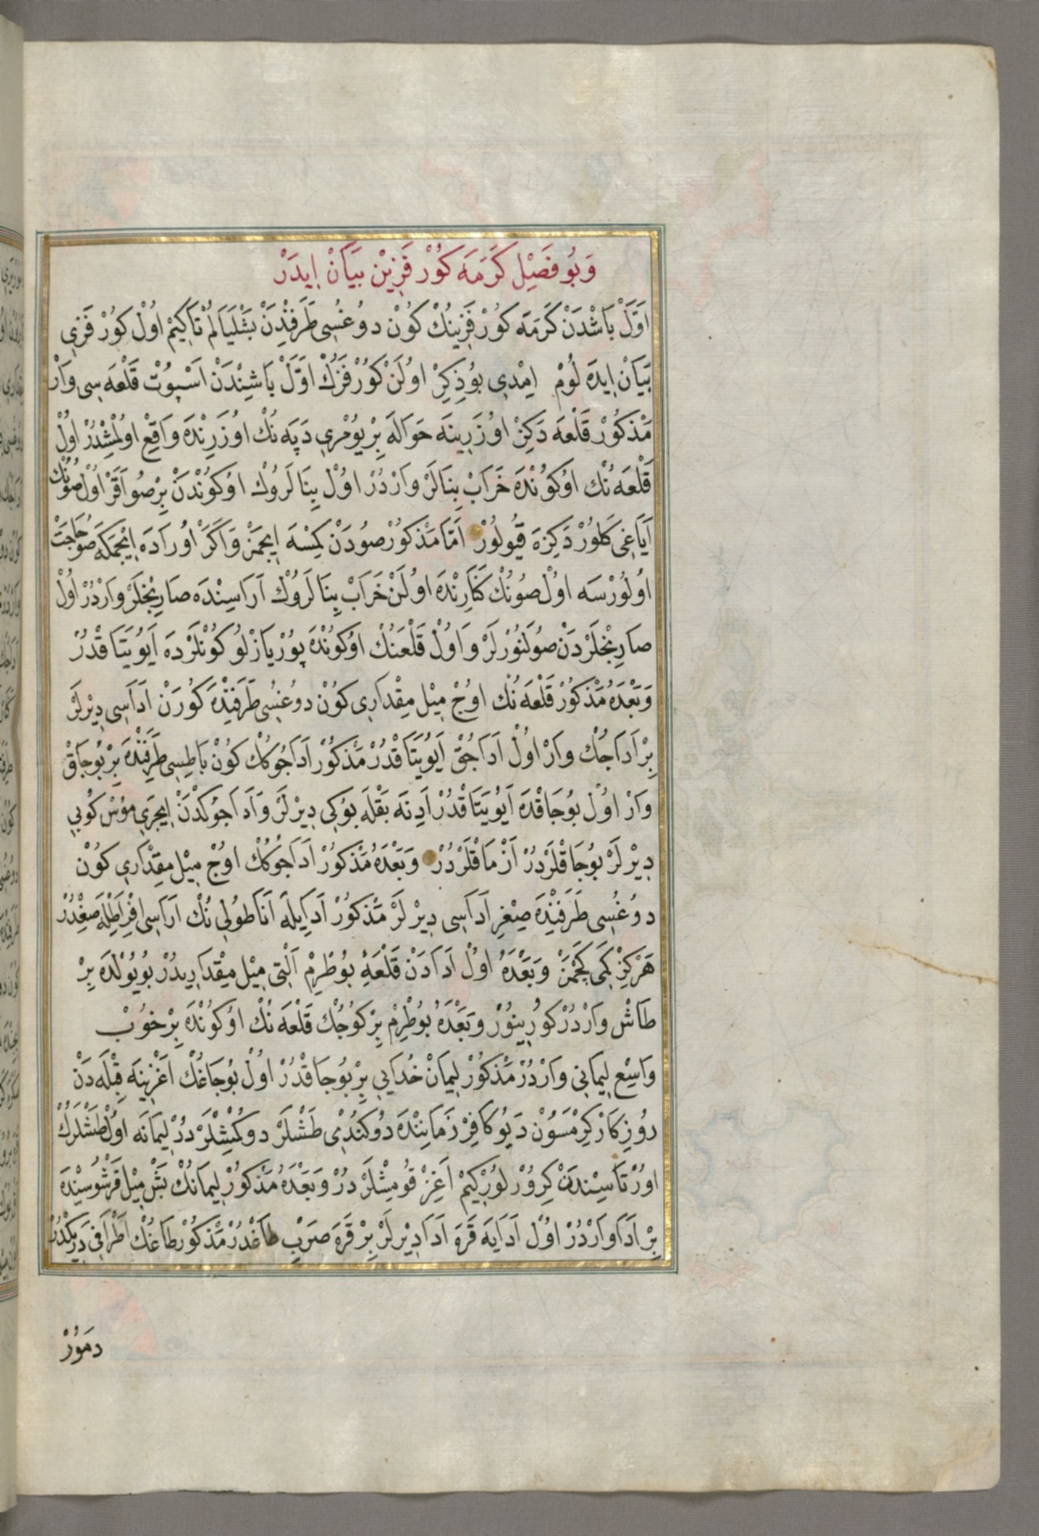 وَبُو فَصْلِ كَرَمَه كُورْفَزِينْ بَيَانْ اِيدَرْ
اَوَّلْ بَاشْدَنْ كَرَمَه كُورْفَزِينُكْ كُونْ دوغُسِى طَرَفِنْدَنْ بَشْلَيَالُمْ تَاكِيمْ اُولْ كُورْفَزِى
بَيَانْ اِيدَه لُومْ اِمْدِى بُو ذِكِرْ اُولَنْ كُورْفَزُكْ اَوَّلْ بَاشِنْدَنْ اَسْبُوتْ قَلْعَه سِى وَارْ
مَذْكُورْ قَلْعَه دَكِزْ اُوزَرِينَه حَوَالَه بِرْ يُومْرِى دَپَه نُكْ اُوزَرِنْدَه وَاقِعْ اُولْمِشْدُرْ اُولْ
قَلْعَه نُكْ اُوكُونْدَه خَرَابْ بِنَالَرْ وَارْدُرْ اُولْ بِنَالَرُوكْ اُوكُونْدَنْ بِرْ صُو اَقَرْ اُولْ صُونُكْ
اَيَاغِى كَلُورْ دَكِزَه قُيُولُورْ اَمَّا مَذْكُورْ صُودَنْ كِمْسَه اِيچْمَزْ وَاَكَرْ اُورَادَه اِيچْمَكَه صُو حَاجَتْ
اُولُورْسَه اُولْ صُونُكْ كَنَارِنْدَه اُولَنْ خَرَابْ بِنَالَرُوكْ آرَاسِنْدَه صَارِنْجْلَرْ وَارْدُرْ اُولْ
صَارِنْجْلَرْدَنْ صُولَنُورْلَرْ وَاُولْ قَلْعَنُكْ اُوكُونْدَه پُورْيَازْلُو كُونْلَرْدَه اَيُو يَتَاقْدُرْ
وَبَعْدَهُ مَذْكُورْ قَلْعَه نُكْ اوُجْ مِيْل مِقْدَارِى كُونْ دوغُسِى طَرَفِنْدَه كُورَنْ اَدَاسِى دِيرْلَرْ
بِرْ اَدَاجُكْ وَارْ اُولْ اَدَاجُقْ اَيُو يَتَاقْدُرْ مَذْكُورْ اَدَاجُوكُكْ كُونْ بَاطِسِى طَرَفِنْدَه بِرْ بُوجَاقْ
وَارْ اُولْ بُوجَاقْدَه اَيُو يَتَاقْدُرْ اَدِنَه بَقْلَه بُوكِى دِيرْلَرْ وَاَدَاجُوكْدَنْ اِيچَرِى مُوسْ كُوبِى
دِيرْلَرْ بُوجَاقْلَرْدُرْ اَزْمَاقْلَرْدُرْ وَبَعْدَهُ مَذْكُورْ اَدَاجُوكُكْ اوُجْ مِيْل مِقْدَارِى كُونْ
دوغُسِى طَرَفِنْدَه صِغِرْ اَدَاسِى دِيرْلَرْ مَذْكُورْ اَدَايِلَه اَنَاطُولِى نُكْ آرَاسِى اِفْرَاطِلَه صِغْدُرْ
هَرْكِزْ كَمِى كَچْمَزْ وَبَعْدَهُ اُولْ اَدَادَنْ قَلْعَهِ بُوطْرِمْ اَلْتِى مِيْل مِقْدَارِيدُرْ بُو يُولْدَه بِرْ
طَاشْ وَارْدُرْ كُورِينُورْ وَبَعْدَهُ بُوطْرِمْ بِرْ كُوجُكْ قَلْعَه نُكْ اُوكُونْدَه بِرْ خُوبْ
وَاسِعْ لِيمَانِى وَارْدُرْ مَذْكُورْ لِيمَانْ خُدَايِى بِرْ بُوجَاقْدُرْ اُولْ بُوجَاغُكْ اَغْزِينَه قِبْلَه دَنْ
رُوزِكَارْ كِرْمَسُونْ دَيُو كَافِرْ زَمَانِنْدَه دُوكُنْدِى طَشْلَرْ دوكْمِشْلَرْدُرْ لِيمَانَه اُولْ طَشْلَرُكْ
اوُرْتَاسِنْدَنْ كِرُورْلُورْكِيمْ اَغِزْ قُومِشْلَرْدُرْ وَبَعْدَهُ مَذْكُورْ لِيمَانُكْ بَشْ مِيْل قَرْشُوسِنْدَه
بِرْ اَدَا وَارْدُرْ اُولْ اَدَايَه قَرَه اَدَا دِيرْلَرْ بِرْ قَرَه صَرْبْ طَاغْدُرْ مَذْكُورْ طَاغُكْ اَطْرَافِى دَپَكْلُدُرْ
دَمُورْ